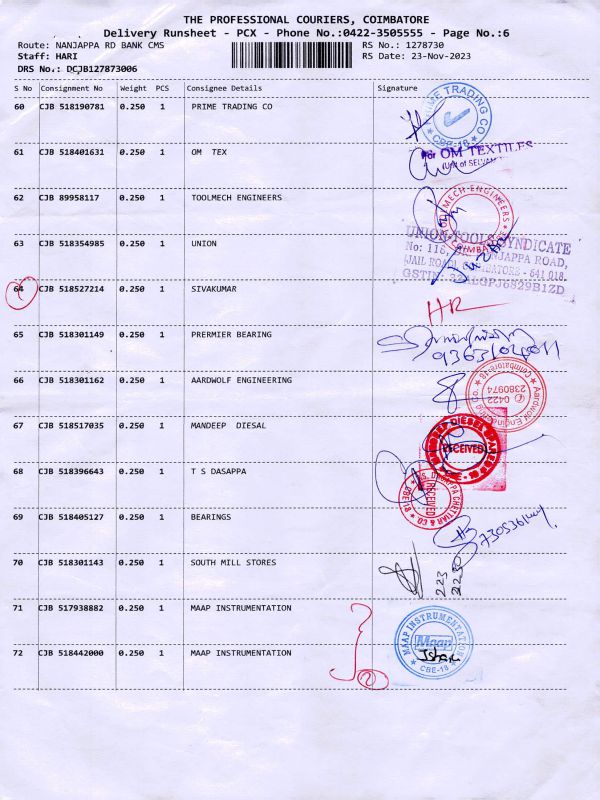 THE PROFESSIONAL COURIERS, COIMBATORE
Delivery Runsheet - PCX - Phone No.:0422-3505555 - Page No.:6
Route: NANJAPPA RD BANK CMS RS No.: 1278730
Staff: HARI RS Date: 23-Nov-2023
DRS No.: DCJB127873006
S No Consignment No Weight PCS Consignee Details Signature
60 CJB 518190781 0.250 1 PRIME TRADING CO
PRIME TRADING CO
CBE-18
61 CJB 518401631 0.250 1 OM TEX
For OM TEXTILES
62 CJB 89958117 0.250 1 TOOLMECH ENGINEERS
TOOLMECH-ENGINEERS
COIMBATORE
63 CJB 518354985 0.250 1 UNION
UNION TOOLS SYNDICATE
No: 116, NANJAPPA ROAD,
JAIL ROAD, COIMBATORE - 641 018.
64 CJB 518527214 0.250 1 SIVAKUMAR
HR
65 CJB 518301149 0.250 1 PRERMIER BEARING
66 CJB 518301162 0.250 1 AARDWOLF ENGINEERING
Aardwolf Engineering Co.
Coimbatore-18
0422
2380974
67 CJB 518517035 0.250 1 MANDEEP DIESAL
RECEIVED
68 CJB 518396643 0.250 1 T S DASAPPA
RECEIVED
69 CJB 518405127 0.250 1 BEARINGS
70 CJB 518301143 0.250 1 SOUTH MILL STORES
223
2230
71 CJB 517938882 0.250 1 MAAP INSTRUMENTATION
MAAP INSTRUMENTATION
Maap
CBE-18
72 CJB 518442000 0.250 1 MAAP INSTRUMENTATION
2